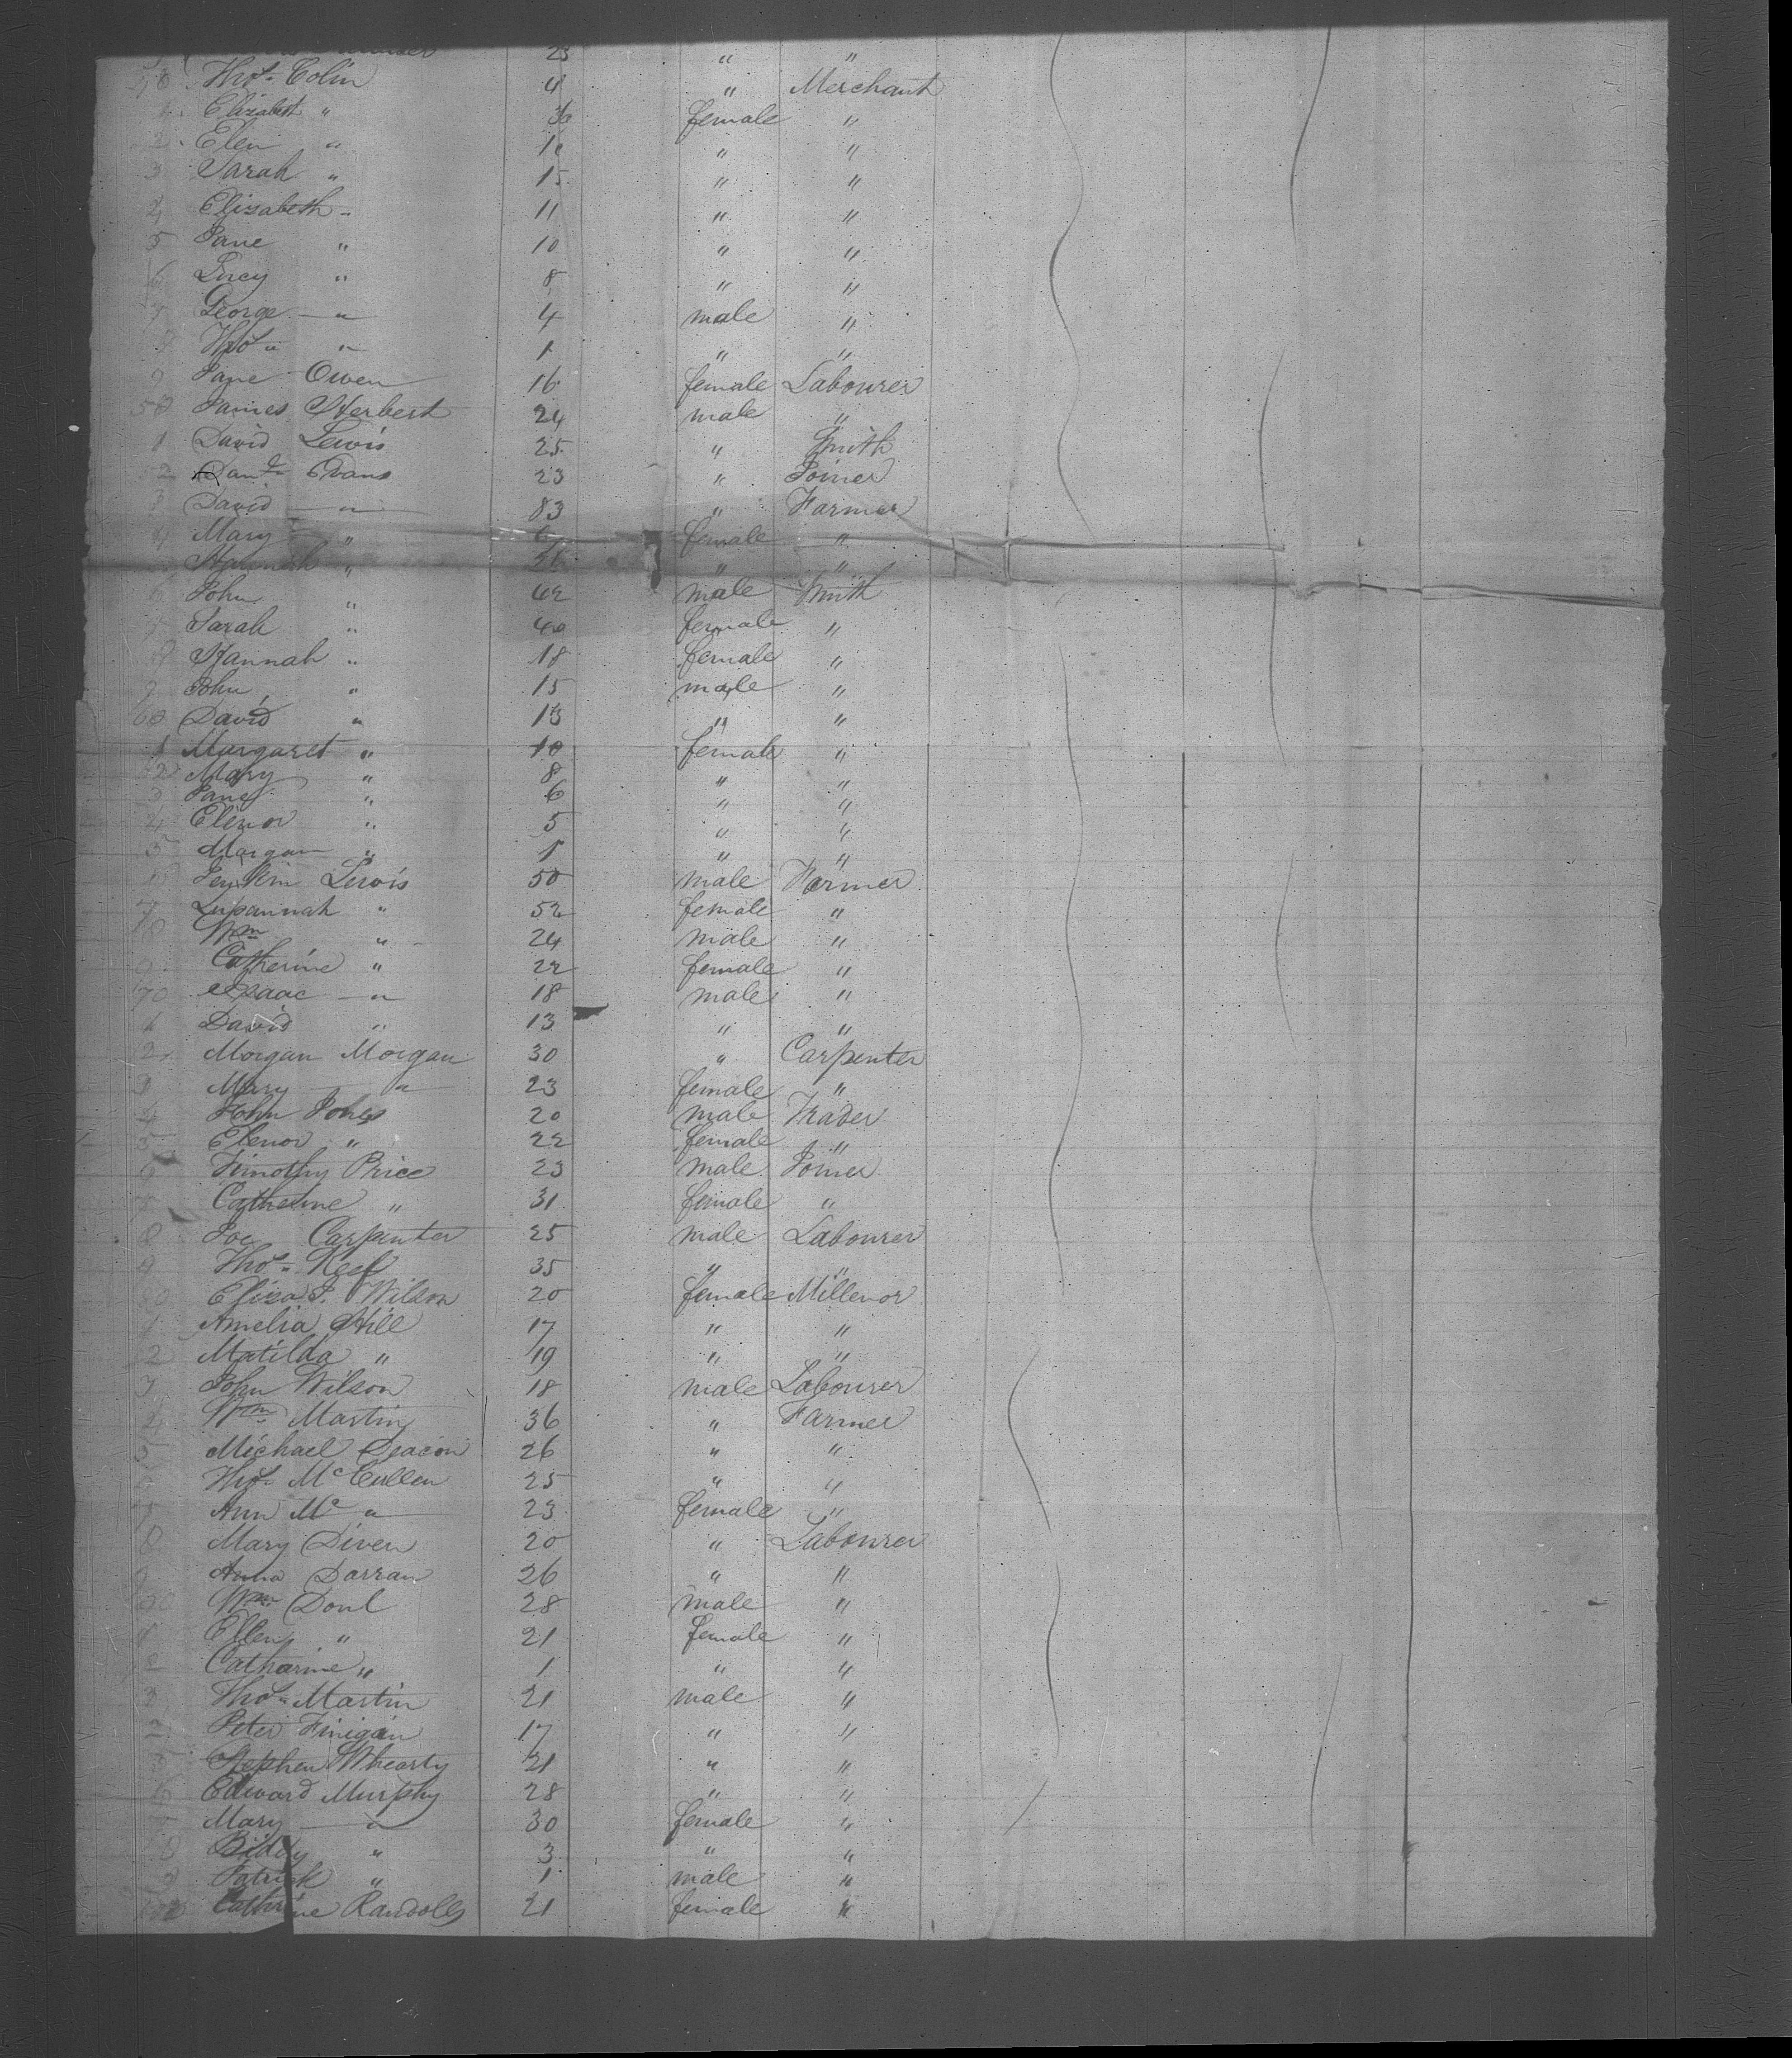 23 " "
Thos Colin 4 " Merchant
1 Elizabeth " 36 female "
2 Elen " 1 " "
3 Sarah " 15 " "
4 Elizabeth " 11 " "
5 Jane " 10 " "
6 Lucy " 8 " "
7 George " 4 male "
Thos " 1 " "
9 Jane Owen 16 female Labourer
50 James Herbert 24 male "
1 David Lewis 25 " Smith
52 Danl Evans 23 " Joiner
3 David " 83 " Farmer
4 Mary " female "
Hannah " " "
6 John " 42 male Smith
7 Sarah " 40 female "
8 Hannah " 18 female "
9 John " 15 male "
60 David " 13 " "
1 Margaret " 10 female "
62 Mary " 8 " "
3 Jane " 6 " "
4 Elenor " 5 " "
5 Morgan " 1 " "
Jenkin Lewis 50 male Farmer
7 Susannah " 52 female "
Wm " 24 male "
9 Catherine " 22 female "
70 Isaac " 18 male "
1 David " 13 " "
2 Morgan Morgan 30 " Carpenter
3 Mary " 23 female "
4 John Jones 20 male Trader
5 Elenor " 22 female "
6 Timothy Price 23 male Joiner
Catherine " 31 female "
8 Joe Carpenter 25 male Labourer
9 Thos Keef 35 " "
80 Eliza J. Wilson 20 female Millenor
1 Amelia Hill 17 " "
2 Matilda " 19 " "
3 John Wilson 18 male Labourer
4 Wm Martin 36 " Farmer
5 Michael Deacon 26 " "
Thos McCullen 25 " "
7 Ann Mc " 23 female "
8 Mary Diven 20 " Labourer
9 Anna Darran 26 " "
90 Wm Doul 28 male "
1 Ellen " 21 female "
2 Catharine " 1 " "
3 Thos Martin 21 male "
4 Peter Finigan 17 " "
5 Stephen Whearty 21 " "
6 Edward Murphy 28 " "
7 Mary " 30 female "
8 Biddy " 3 " "
9 Patrick " 1 male "
Cathrine Randolls 21 female "